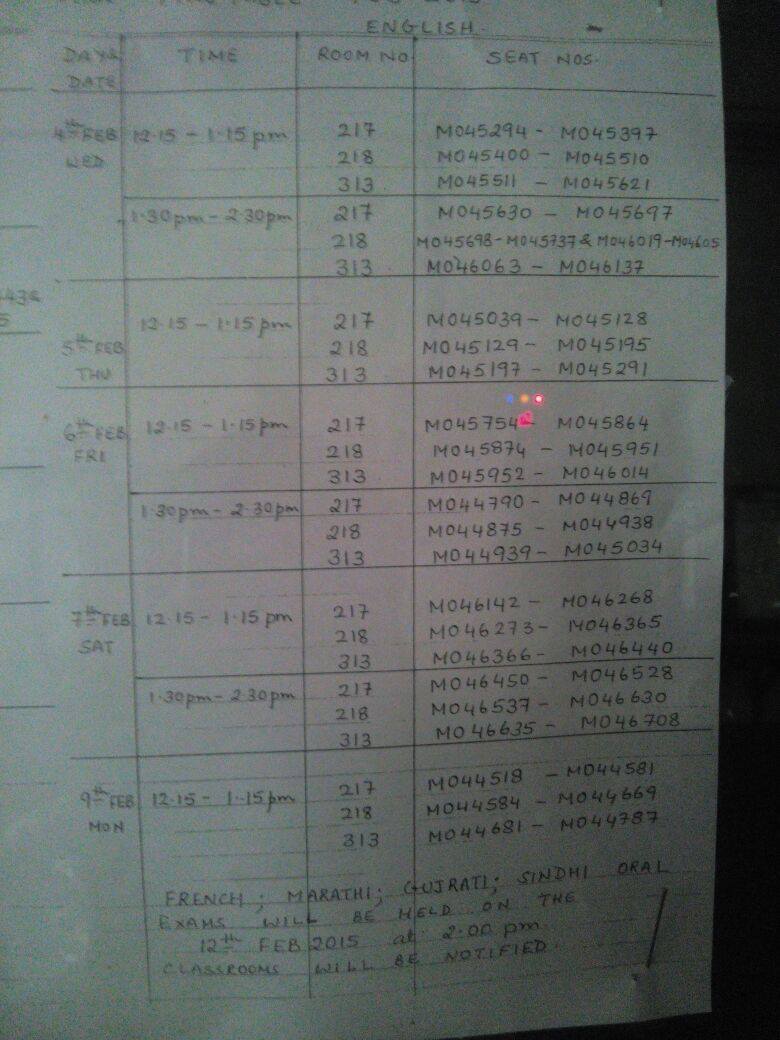 ENGLISH
DAY & TIME ROOM NO SEAT NOS.
DATE
4th FEB 12.15 - 1.15 pm 217 M045294 - M045397
WED 218 M045400 - M045510
313 M045511 - M045621
1.30pm - 2.30pm 217 M045630 - M045697
218 M045698 - M045737 & M046019 - M04605
313 M046063 - M046137
12.15 - 1.15 pm 217 M045039 - M045128
5th FEB 218 M045129 - M045195
THU 313 M045197 - M045291
6th FEB 12.15 - 1.15pm 217 M045754 - M045864
FRI 218 M045874 - M045951
313 M045952 - M046014
1.30pm - 2.30pm 217 M044790 - M044869
218 M044875 - M044938
313 M044939 - M045034
7th FEB 12.15 - 1.15 pm 217 M046142 - M046268
SAT 218 M046273 - M046365
313 M046366 - M046440
1.30pm - 2.30pm 217 M046450 - M046528
218 M046537 - M046630
313 M046635 - M046708
9th FEB 12.15 - 1.15pm 217 M044518 - M044581
MON 218 M044584 - M044669
313 M044681 - M044787
FRENCH ; MARATHI; GUJRATI; SINDHI ORAL
EXAMS WILL BE HELD ON THE
12th FEB 2015 at 2.00 pm.
CLASSROOMS WILL BE NOTIFIED.